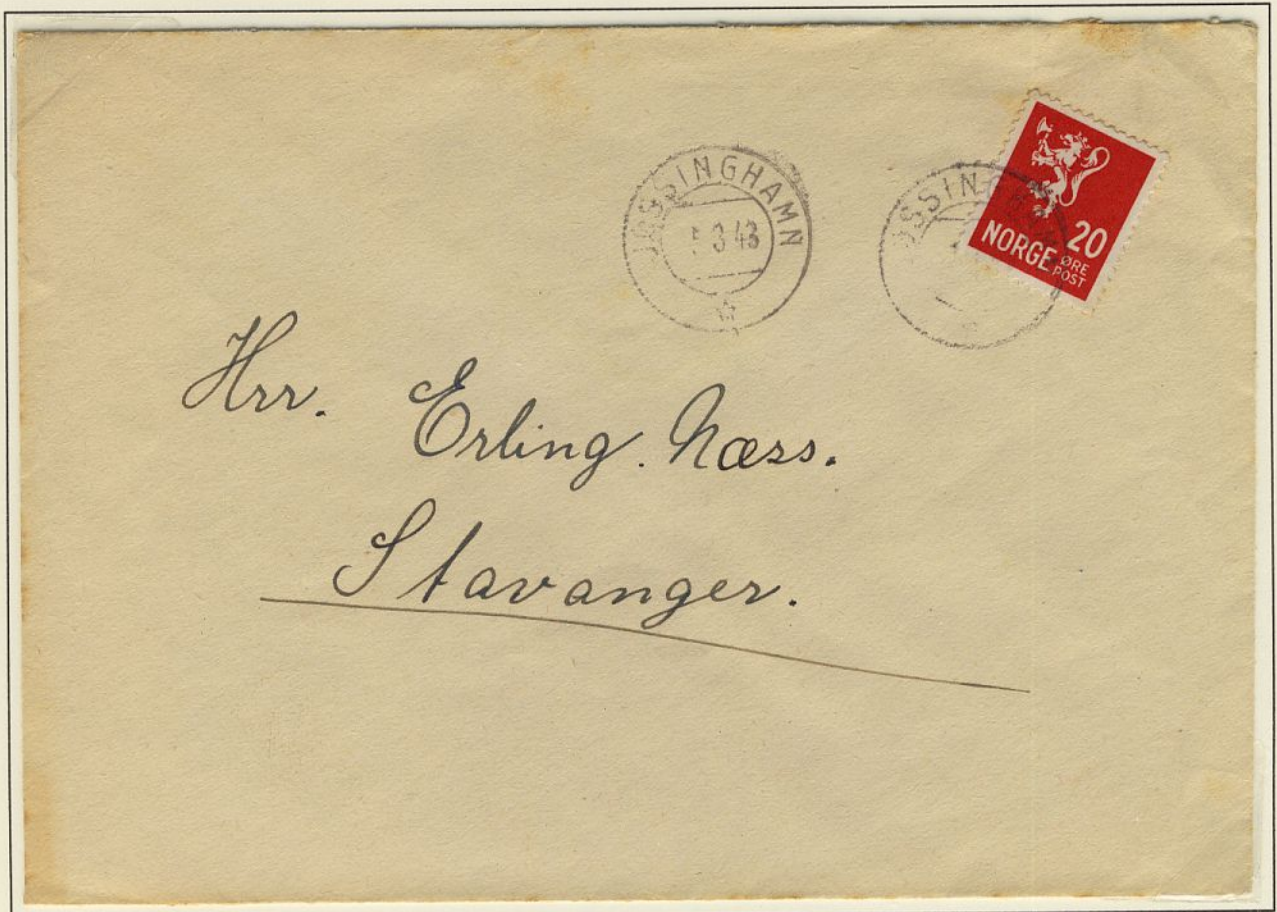 JØSSINGHAMN
3 43
JØSSINGHAMN
20
NORGE ØRE
POST
Hrr. Erling. Næss.
Stavanger.